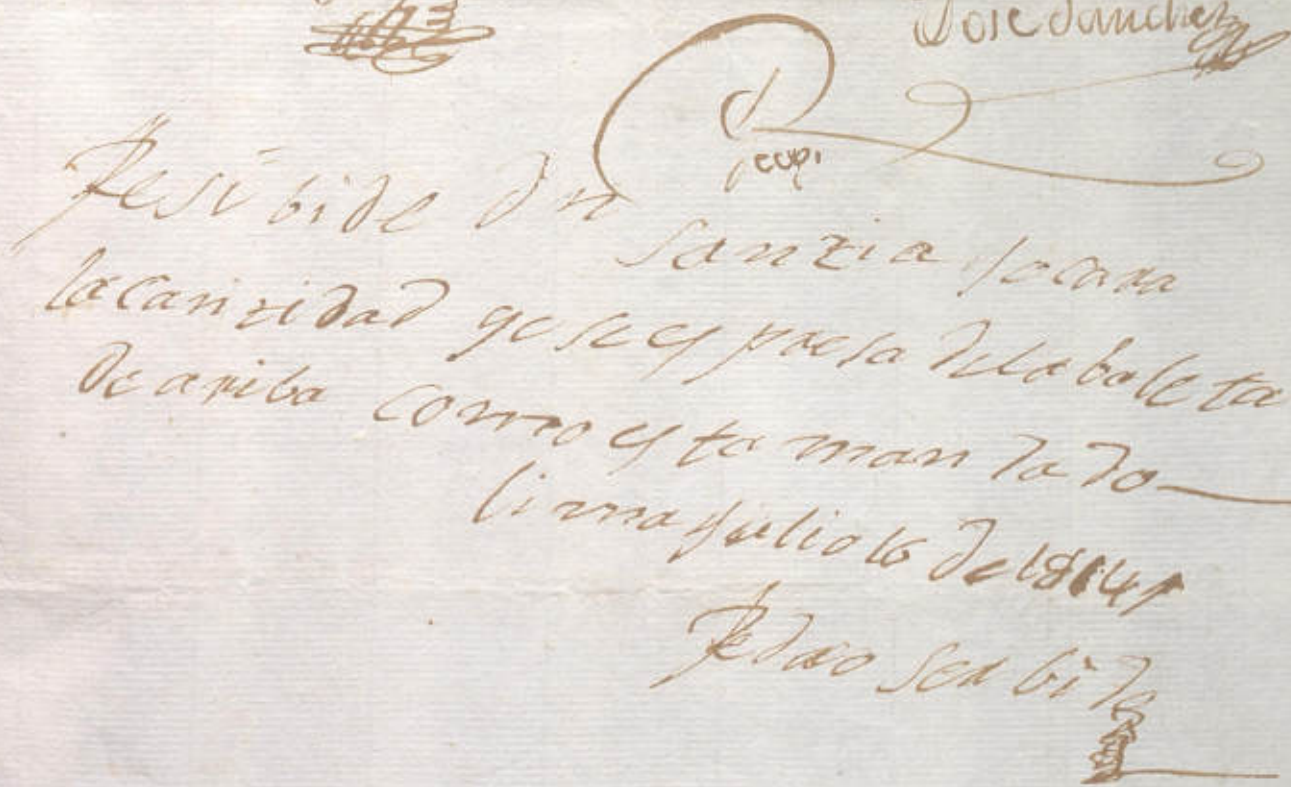 Jose Sanchez
Resibi de Dn Sanzia Jocana
la cantidad qe se espresa de la boleta
de ariba como esta mandado
lima julio 16 de 1814
Pedro serbide